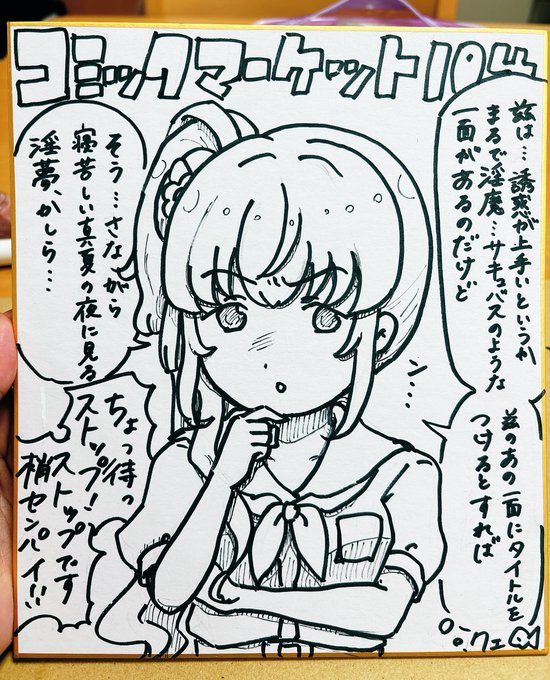 コミックマーケット104
慈は…誘惑が上手いというか
まるで淫魔…サキュバスのような
一面があるのだけど
ン…
慈のあの一面にタイトルを
つけるとすれば
そう…さながら
寝苦しい真夏の夜に見る
淫夢、かしら…
ちょっ待っ
ストップ!
ストップです
梢センパイ!!
クェ